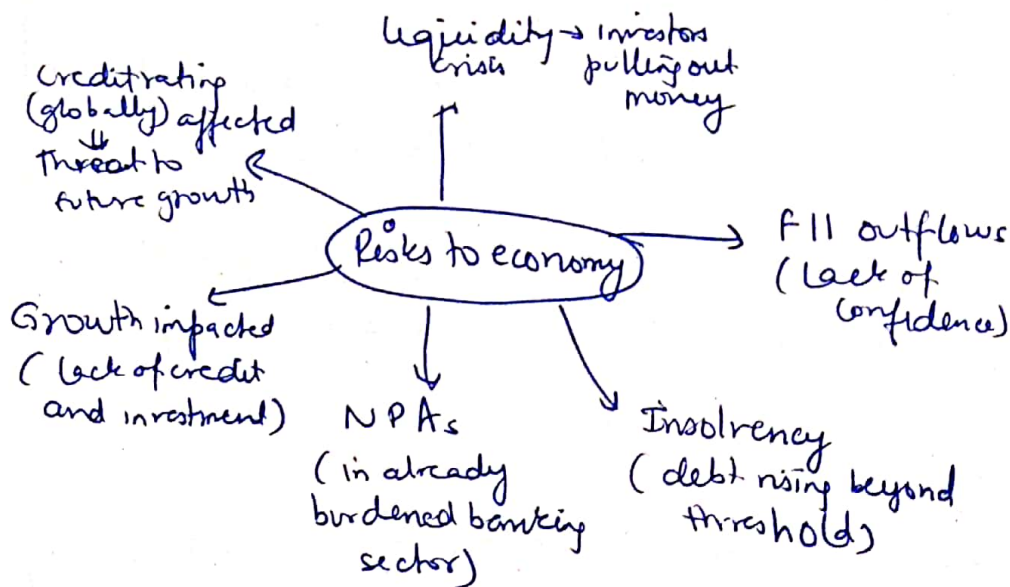 Liquidity → Investors
crisis pulling out
money
Credit rating
(globally) affected
⇓
Threat to
future growth
Risks to economy
FII outflows
(Lack of
confidence)
Growth impacted
(lack of credit
and investment)
NPAs
(in already
burdened banking
sector)
Insolvency
(debt rising beyond
threshold)